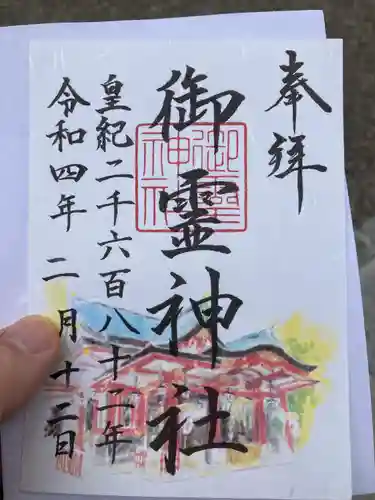 奉拝
御霊神社
御霊神社
皇紀二千六百八十二年
令和四年二月十二日